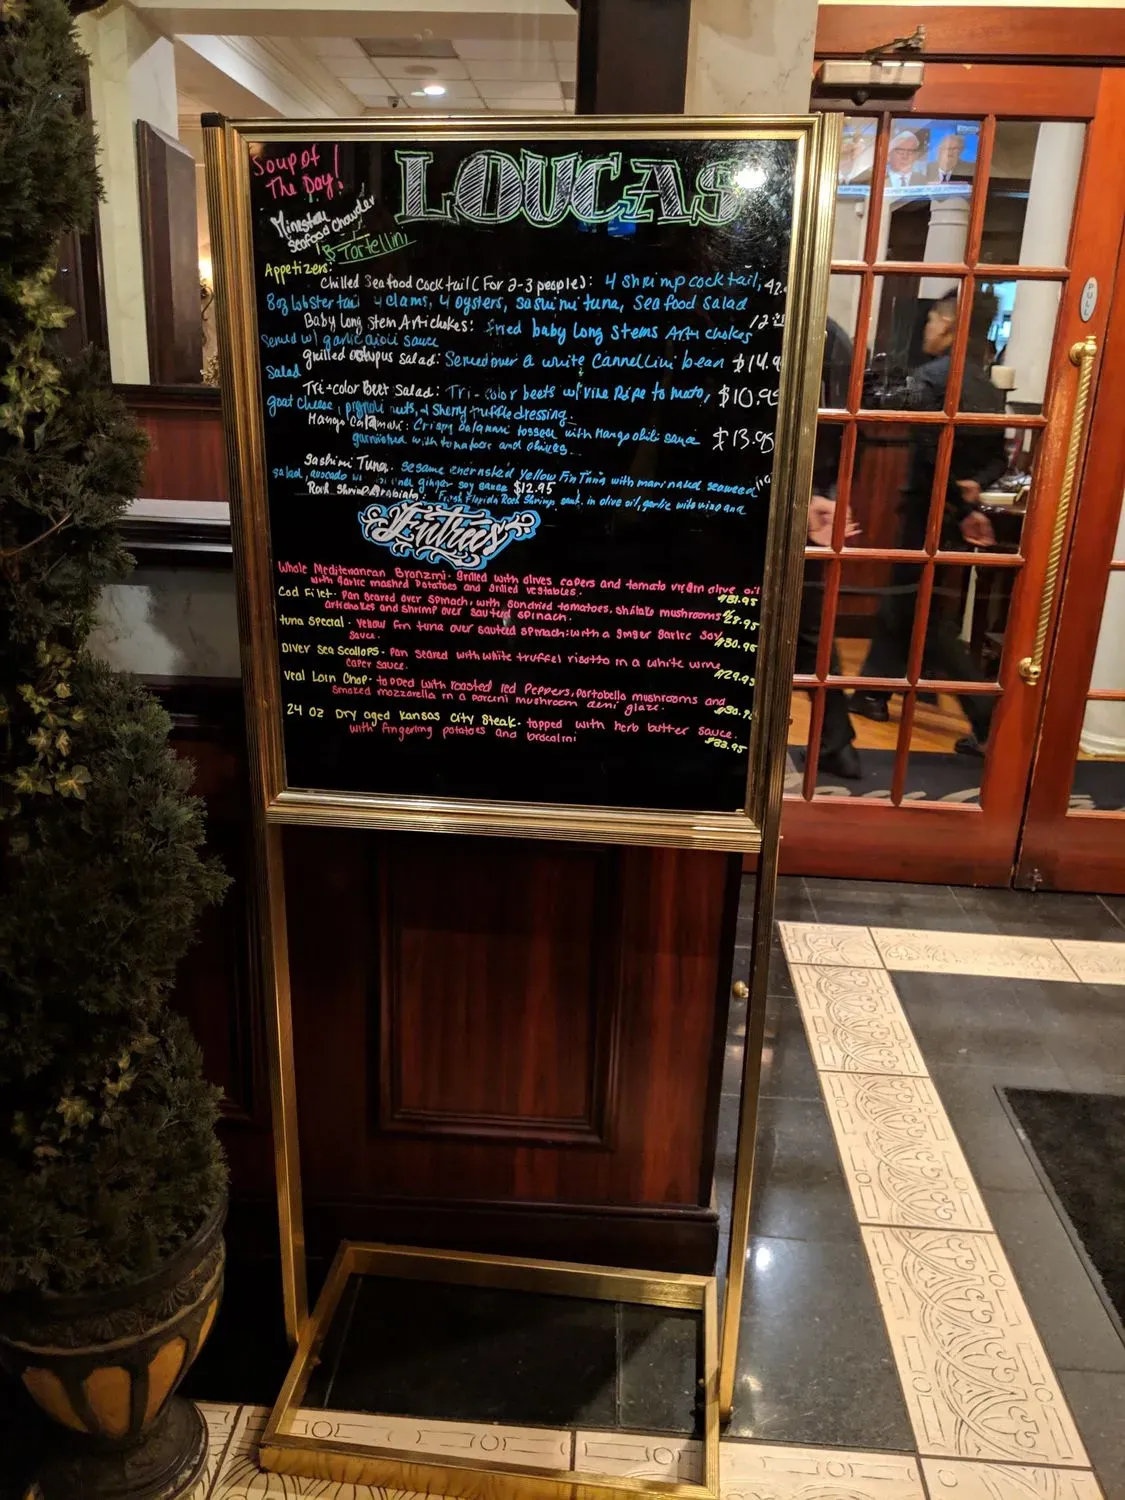 Soup of
The Day!
LOUCAS
Seafood Chowder
Tortellini
Appetizers:
Chilled Seafood Cocktail (For 2-3 people): 4 Shrimp cocktail, 42.
8oz lobster tail 4 clams, 4 oysters, sashimi tuna, Seafood salad
Baby Long Stem Artichokes: fried baby Long Stems Arti chokes 12.
Served w/ garlic aioli sauce
Grilled octupus Salad: Served over a white Cannellini bean $14.9
Salad
Tri-color Beet Salad: Tri-color beets w/ vine Ripe tomato, $10.95
goat Cheese, pignoli nuts, & Sherry truffle dressing.
Mango Calamari: Crispy calamari tossed with Mango chili sauce $13.95
garnished with tomatoes and chives.
Sashimi Tuna. Sesame encrusted Yellow Fin Tuna with marinated seaweed
salad, avocado ginger soy sauce $12.95
Rock Shrimp Arabiata. Fresh Florida Rock Shrimp, saut. in olive oil, garlic
Entrées
Whole Mediterranean Bronzini- Grilled with olives capers and tomato virgin olive oil
with garlic mashed potatoes and grilled vegetables. $31.95
Cod Filet- Pan Seared over Spinach, with sundried tomatoes, shitake mushrooms $28.95
artichokes and shrimp over sauteed spinach.
Tuna Special- Yellow Fin tuna over sauteed spinach with a ginger garlic soy $30.95
sauce.
Diver Sea Scallops- Pan seared with white truffel risotto in a white wine
caper sauce. $29.95
Veal Loin Chop- topped with roasted red peppers, portobello mushrooms and
smoked mozzarella in a porcini mushroom demi glaze. $30.9
24 oz Dry aged Kansas City Steak- topped with herb butter sauce.
with fingerling potatoes and brocolini $33.95
PULL